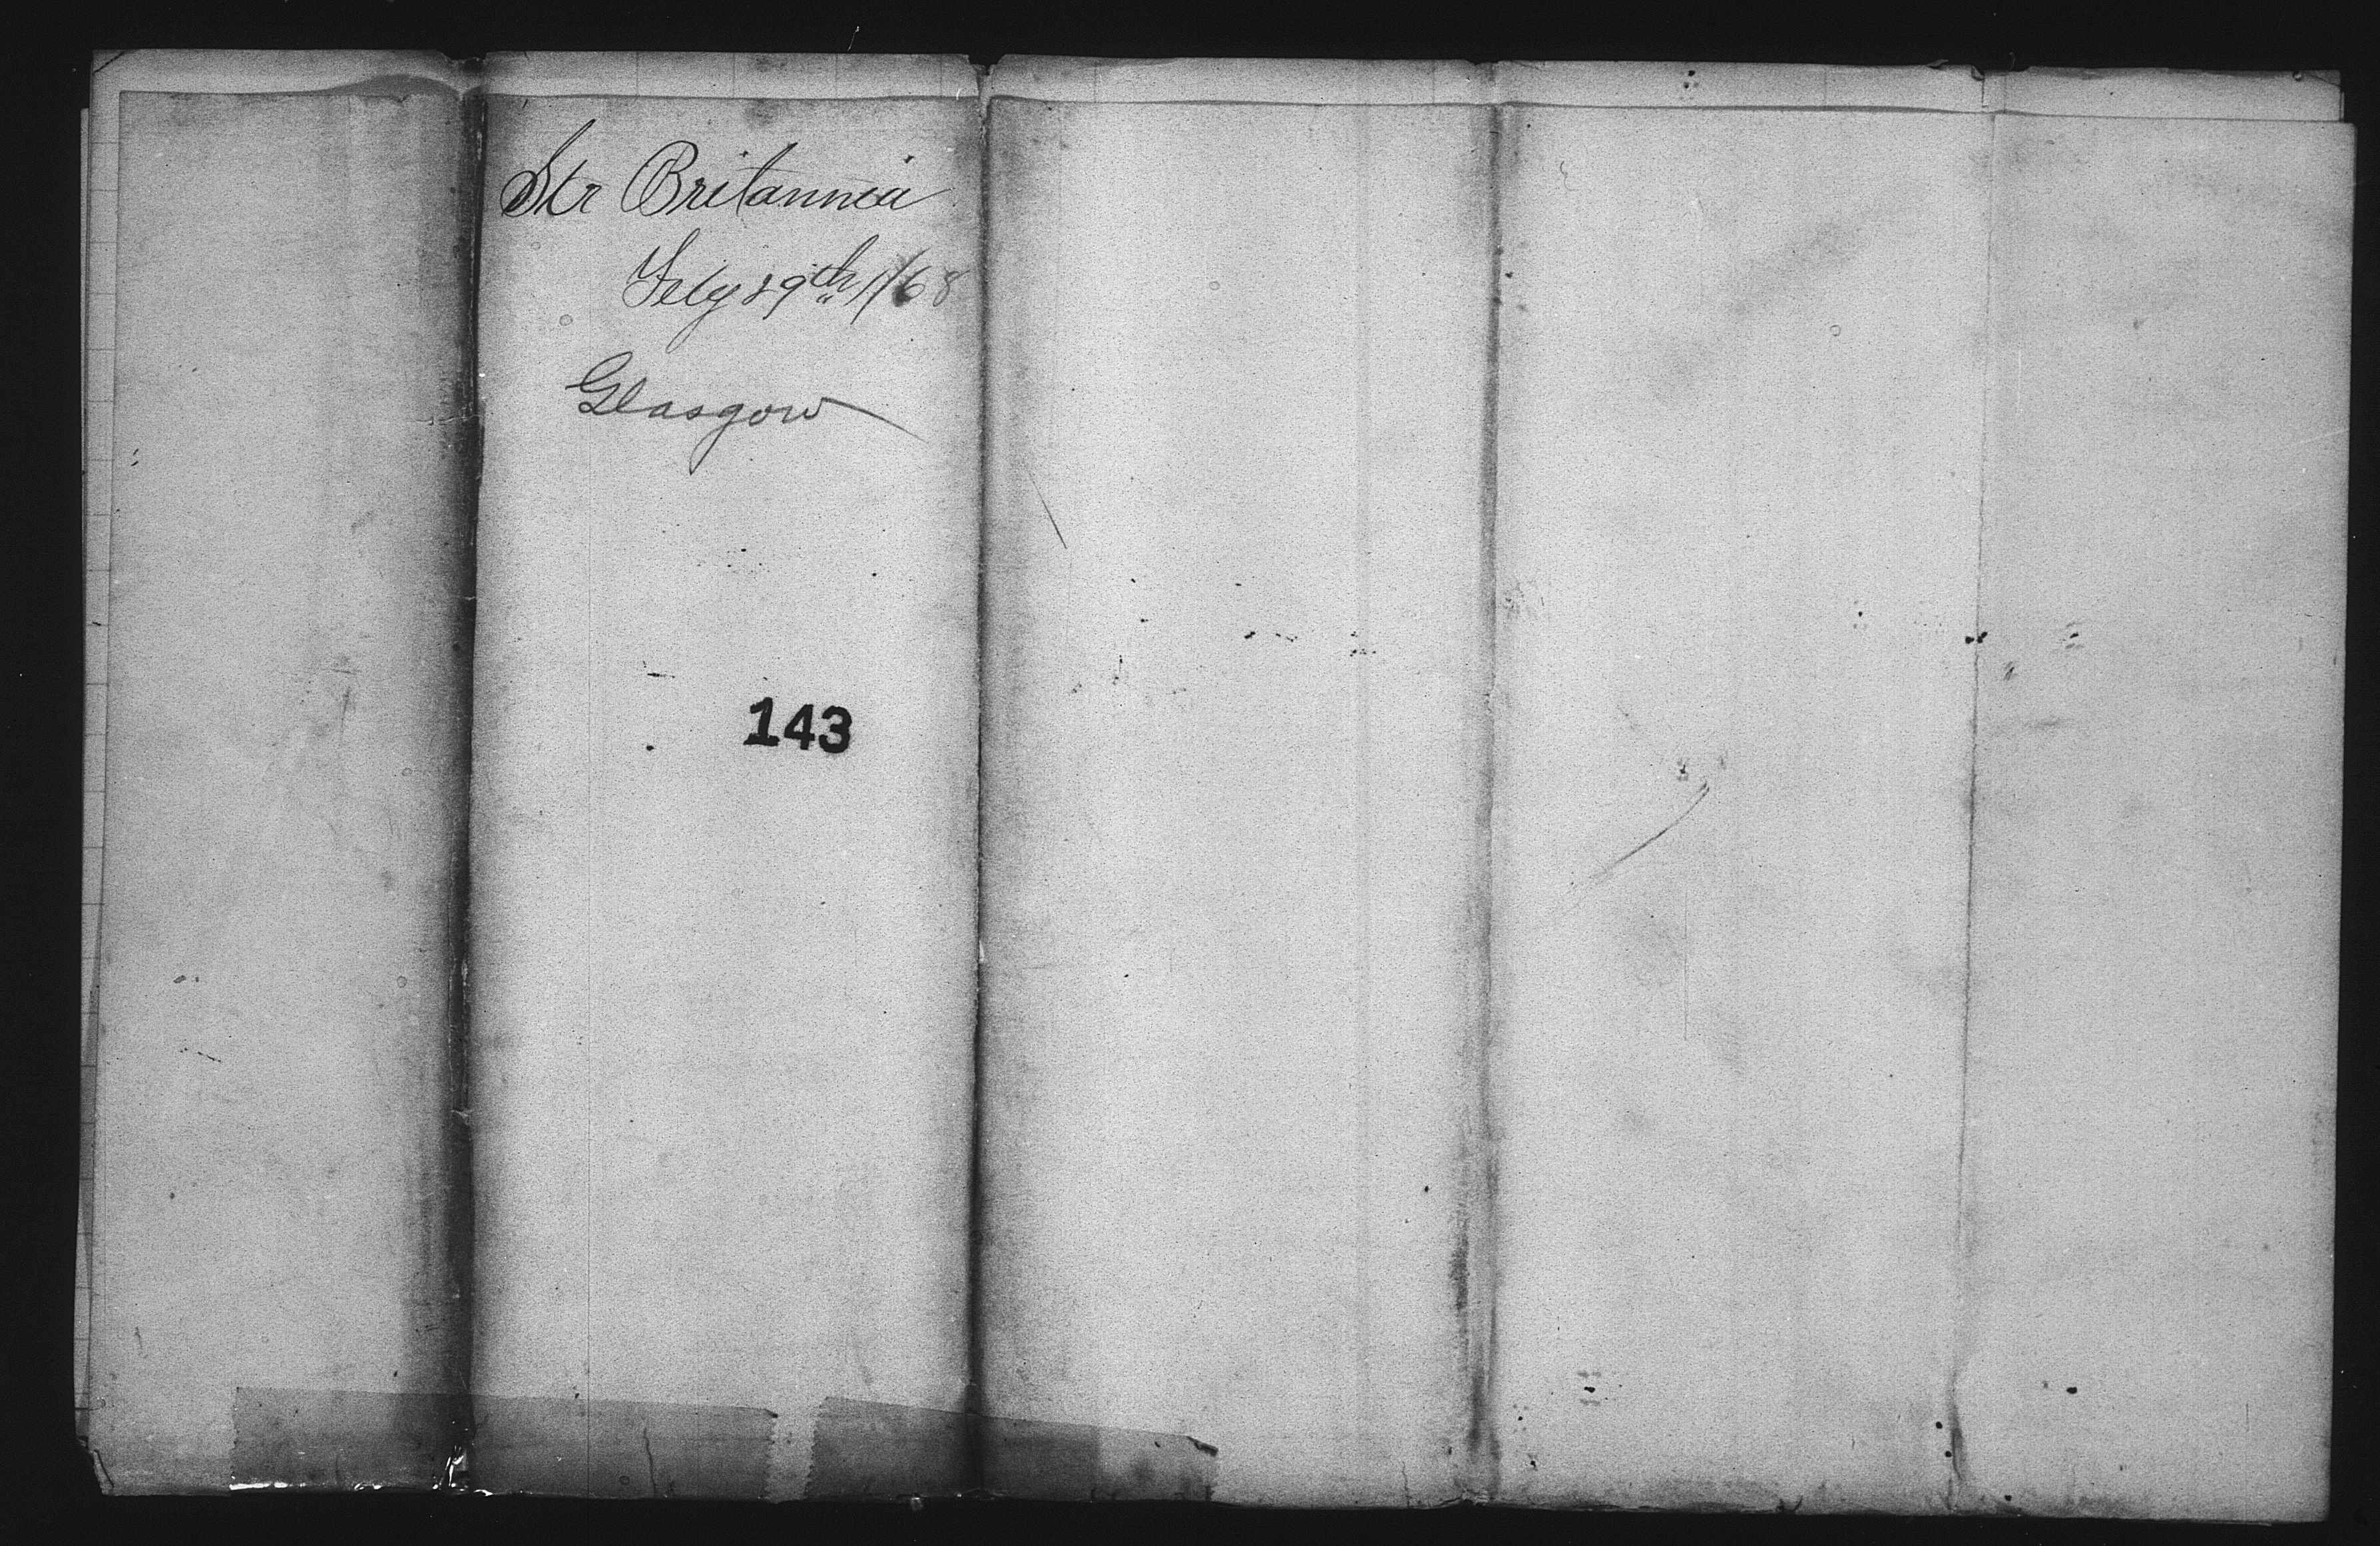 Str Britannia
Feby 29th /68
Glasgow
143